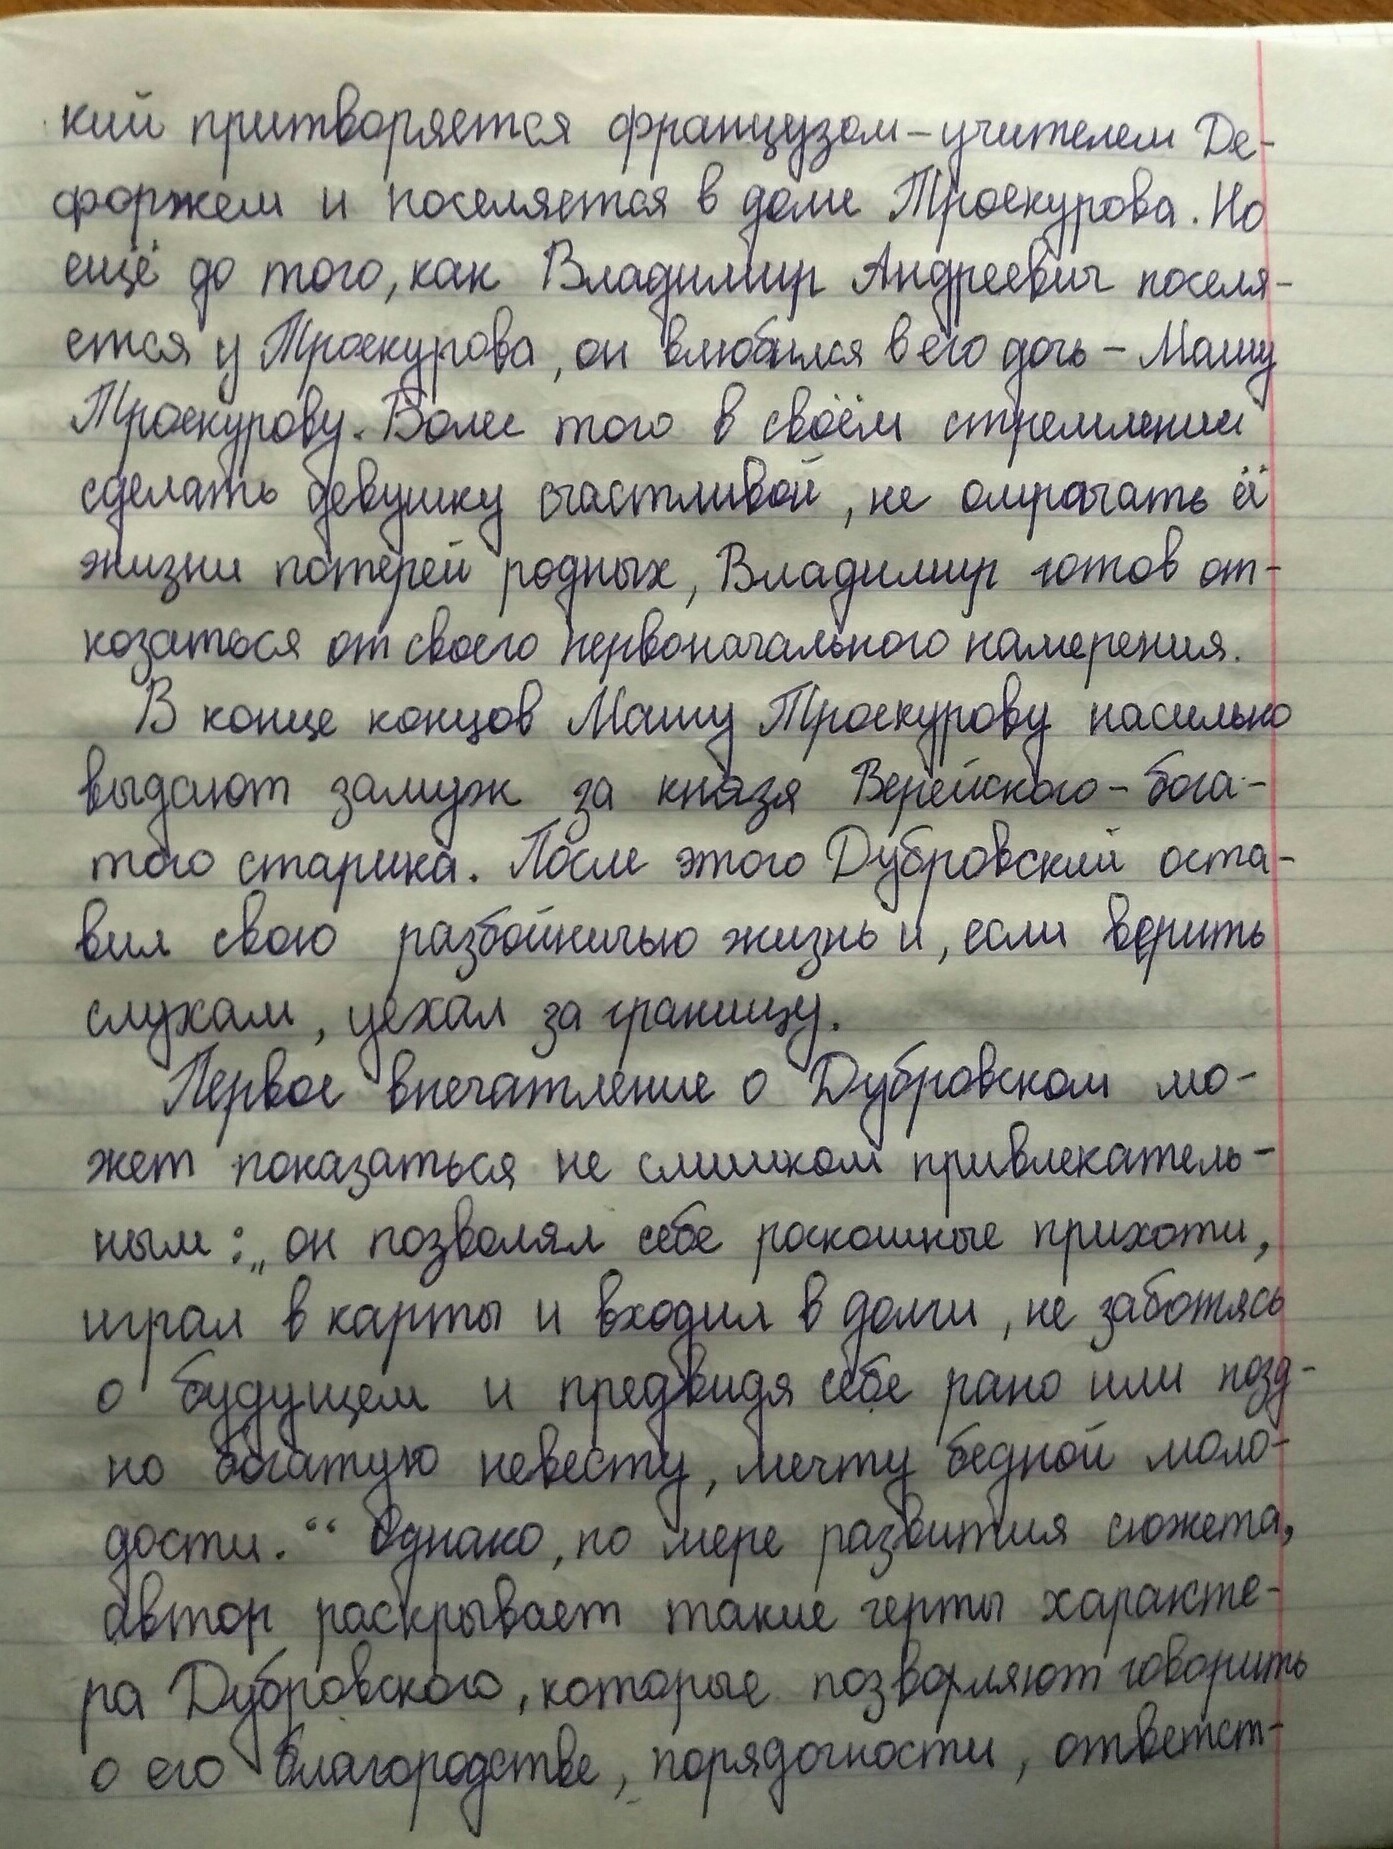 кий притворяется французом-учителем Де-
форжем и поселяется в доме Троекурова. Но
ещё до того, как Владимир Андреевич поселя-
ется у Троекурова, он влюбился в его дочь - Машу
Троекурову. Более того в своём стремлении
сделать девушку счастливой, не омрачать её
жизни потерей родных, Владимир готов от-
козаться от своего первоначального намерения.
В конце концов Машу Троекурову насильно
выдают замуж за князя Верейского - бога-
того старика. После этого Дубровский оста-
вил свою разбойничью жизнь и, если верить
слухам, уехал за границу.
Первое впечатление о Дубровском мо-
жет показаться не слишком привлекатель-
ным: „он позволял себе роскошные прихоти,
играл в карты и входил в долги, не заботясь
о будущем и предвидя себе рано или позд-
но богатую невесту, мечту бедной моло-
дости.“ Однако, по мере развития сюжета,
автор раскрывает такие черты характе-
ра Дубровского, которые позволяют говорить
о его благородстве, порядочности, ответст-